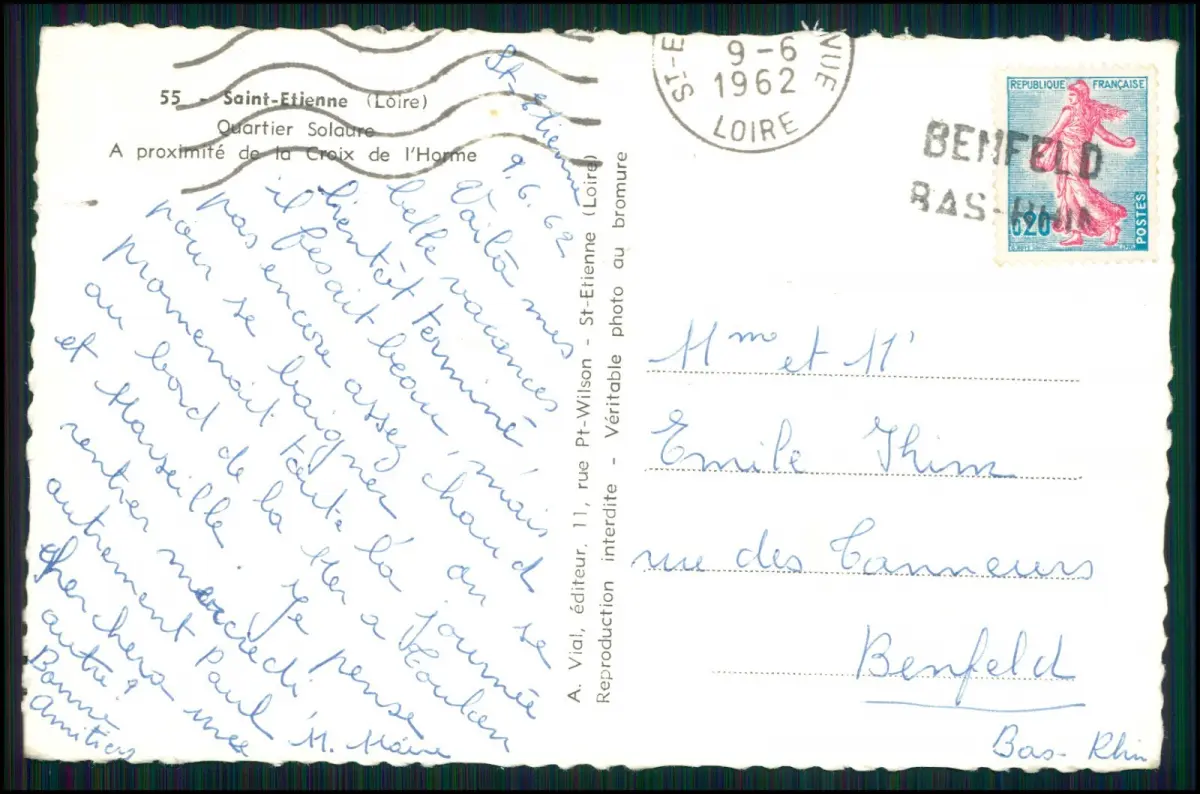 55 - Saint-Etienne (Loire)
Quartier Solaure
A proximité de la Croix de l'Horme
St-Etienne 9.6.62
Voilà mes
belle vacances
bientôt terminé
il fesait beau, mais
pas encore assez chaud
pour se baigner on se
promenait toute la journée
au bord de la Mer a Toulon
et Marseille. Je pense
rentrer mercredi
autrement Paul
cherchera une
autre!
Bonne
Amitiés
M.
A. Vial, éditeur, 11, rue Pt-Wilson - St-Etienne (Loire)
Reproduction interdite - Véritable photo au bromure
ST-E VUE
9-6
1962
LOIRE
REPUBLIQUE FRANÇAISE
0,20
POSTES
BENFELD
BAS-RHIN
Mme et Mr
Emile Thim
rue des Tanneurs
Benfeld
Bas-Rhin